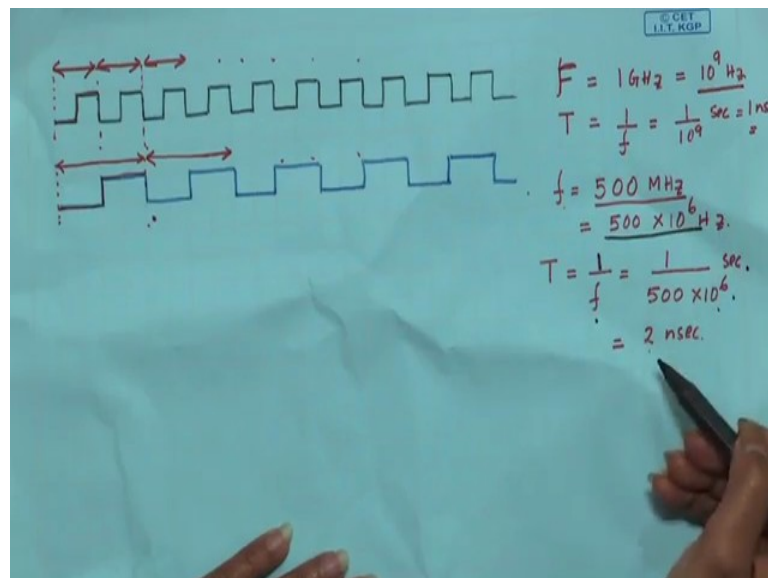 © CET
I.I.T. KGP
F = 1GHz = 10⁹ Hz
T = 1/f = 1/10⁹ sec = 1ns
f = 500 MHz
= 500 × 10⁶ Hz.
T = 1/f = 1/500 × 10⁶ sec.
= 2 nsec.